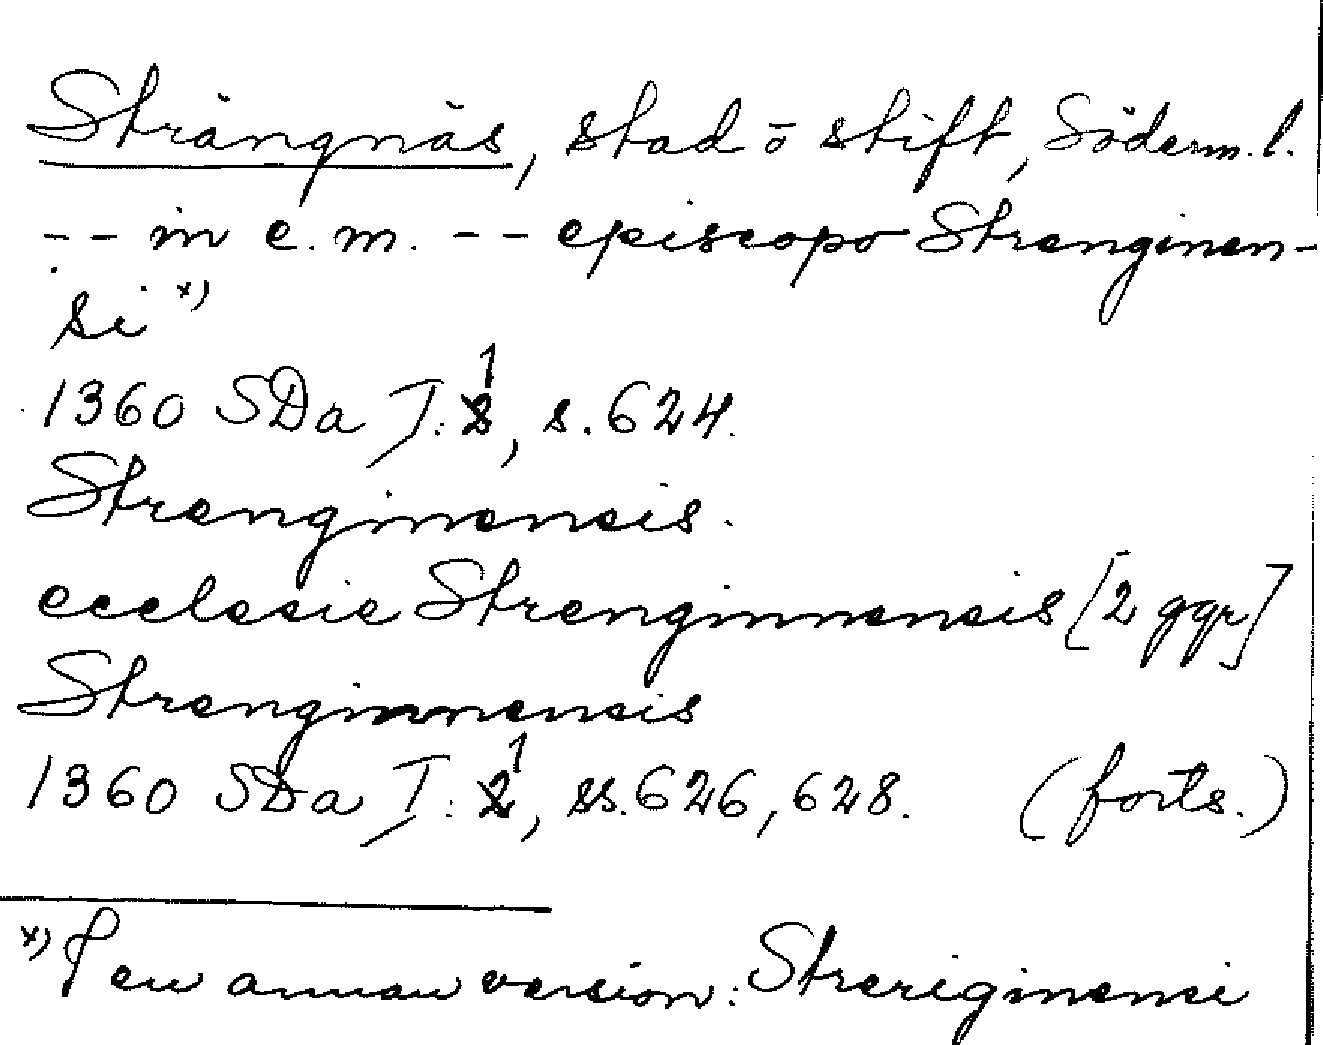 Strängnäs, stad o stift, Söderm. l.
-- in c. m. -- episcopo Strenginen-
si x)
1360 SDa I:1, s. 624.
Strenginensis.
ecclesie Strenginnensis [2 ggr]
Strenginnensis
1360 SDa I:1, ss. 626, 628. (forts.)
x) I en annan version: Streriginensi